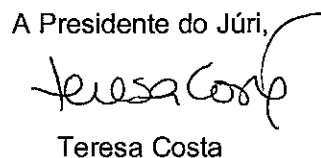 A Presidente do Júri,
Teresa Costa
Teresa Costa